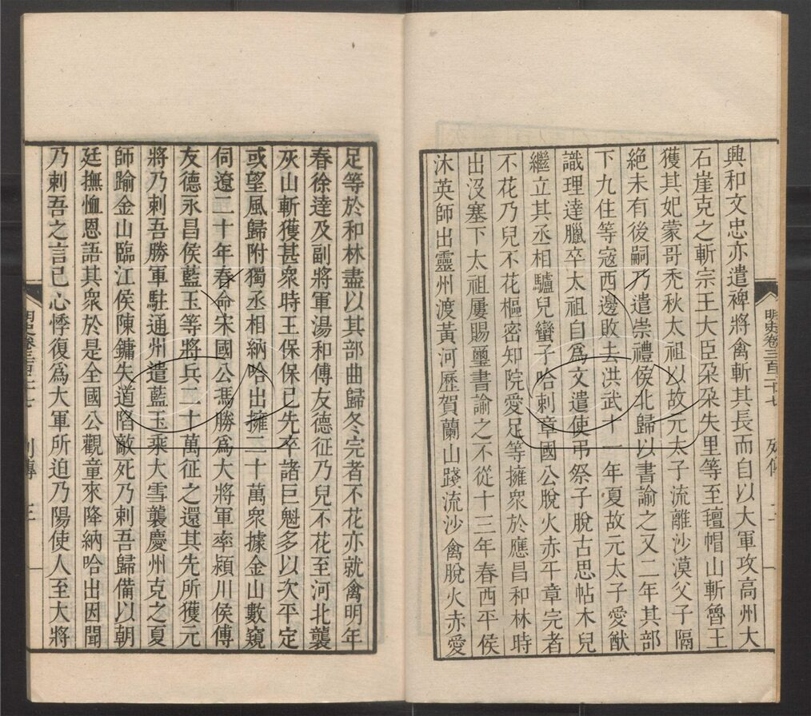 興和文忠亦遣裨將禽斬其長而自以大軍攻高州大
石崖克之斬宗王大臣朶朶失里等至氊帽山斬魯王
獲其妃蒙哥禿秋太祖以故元太子流離沙漠父子隔
絶未有後嗣乃遣崇禮侯北歸以書諭之又二年其部
下九住等寇西邊敗去洪武十一年夏故元太子愛猷
識理達臘卒太祖自爲文遣使弔祭子脫古思帖木兒
繼立其丞相驢兒蠻子哈剌章國公脫火赤平章完者
不花乃兒不花樞密知院愛足等擁衆於應昌和林時
出沒塞下太祖屢賜璽書諭之不從十三年春西平侯
沐英師出靈州渡黃河歷賀蘭山踐流沙禽脫火赤愛
明史卷三百二十七
足等於和林盡以其部曲歸冬完者不花亦就禽明年
春徐達及副將軍湯和傅友德征乃兒不花至河北襲
灰山斬獲甚衆時王保保已先卒諸巨魁多以次平定
或望風歸附獨丞相納哈出擁二十萬衆據金山數窺
伺遼二十年春命宋國公馮勝爲大將軍率潁川侯傅
友德永昌侯藍玉等將兵二十萬征之還其先所獲元
將乃剌吾勝軍駐通州遣藍玉乘大雪襲慶州克之夏
師踰金山臨江侯陳鏞失道陷敵死乃剌吾歸備以朝
廷撫恤恩語其衆於是全國公觀童來降納哈出因聞
乃剌吾之言已心悸復爲大軍所迫乃陽使人至大將
明史卷三百二十七 列傳 三